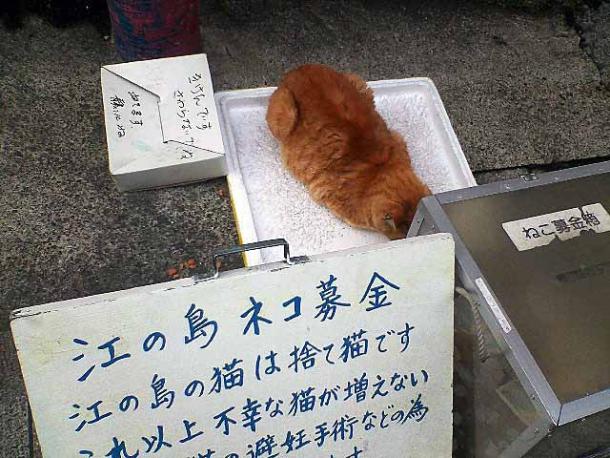 江の島ネコ募金
江の島の猫は捨て猫です
これ以上不幸な猫が増えない
猫の避妊手術などの為
ます
ねこ募金箱
さわらないでね